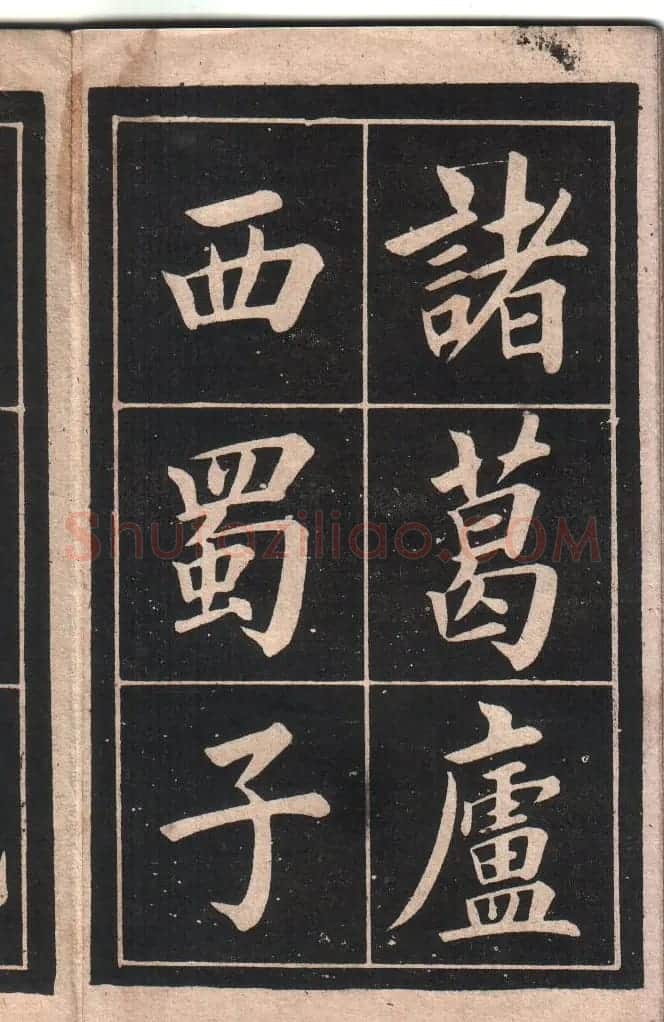 諸葛廬
西蜀子
Shufaziliao.com